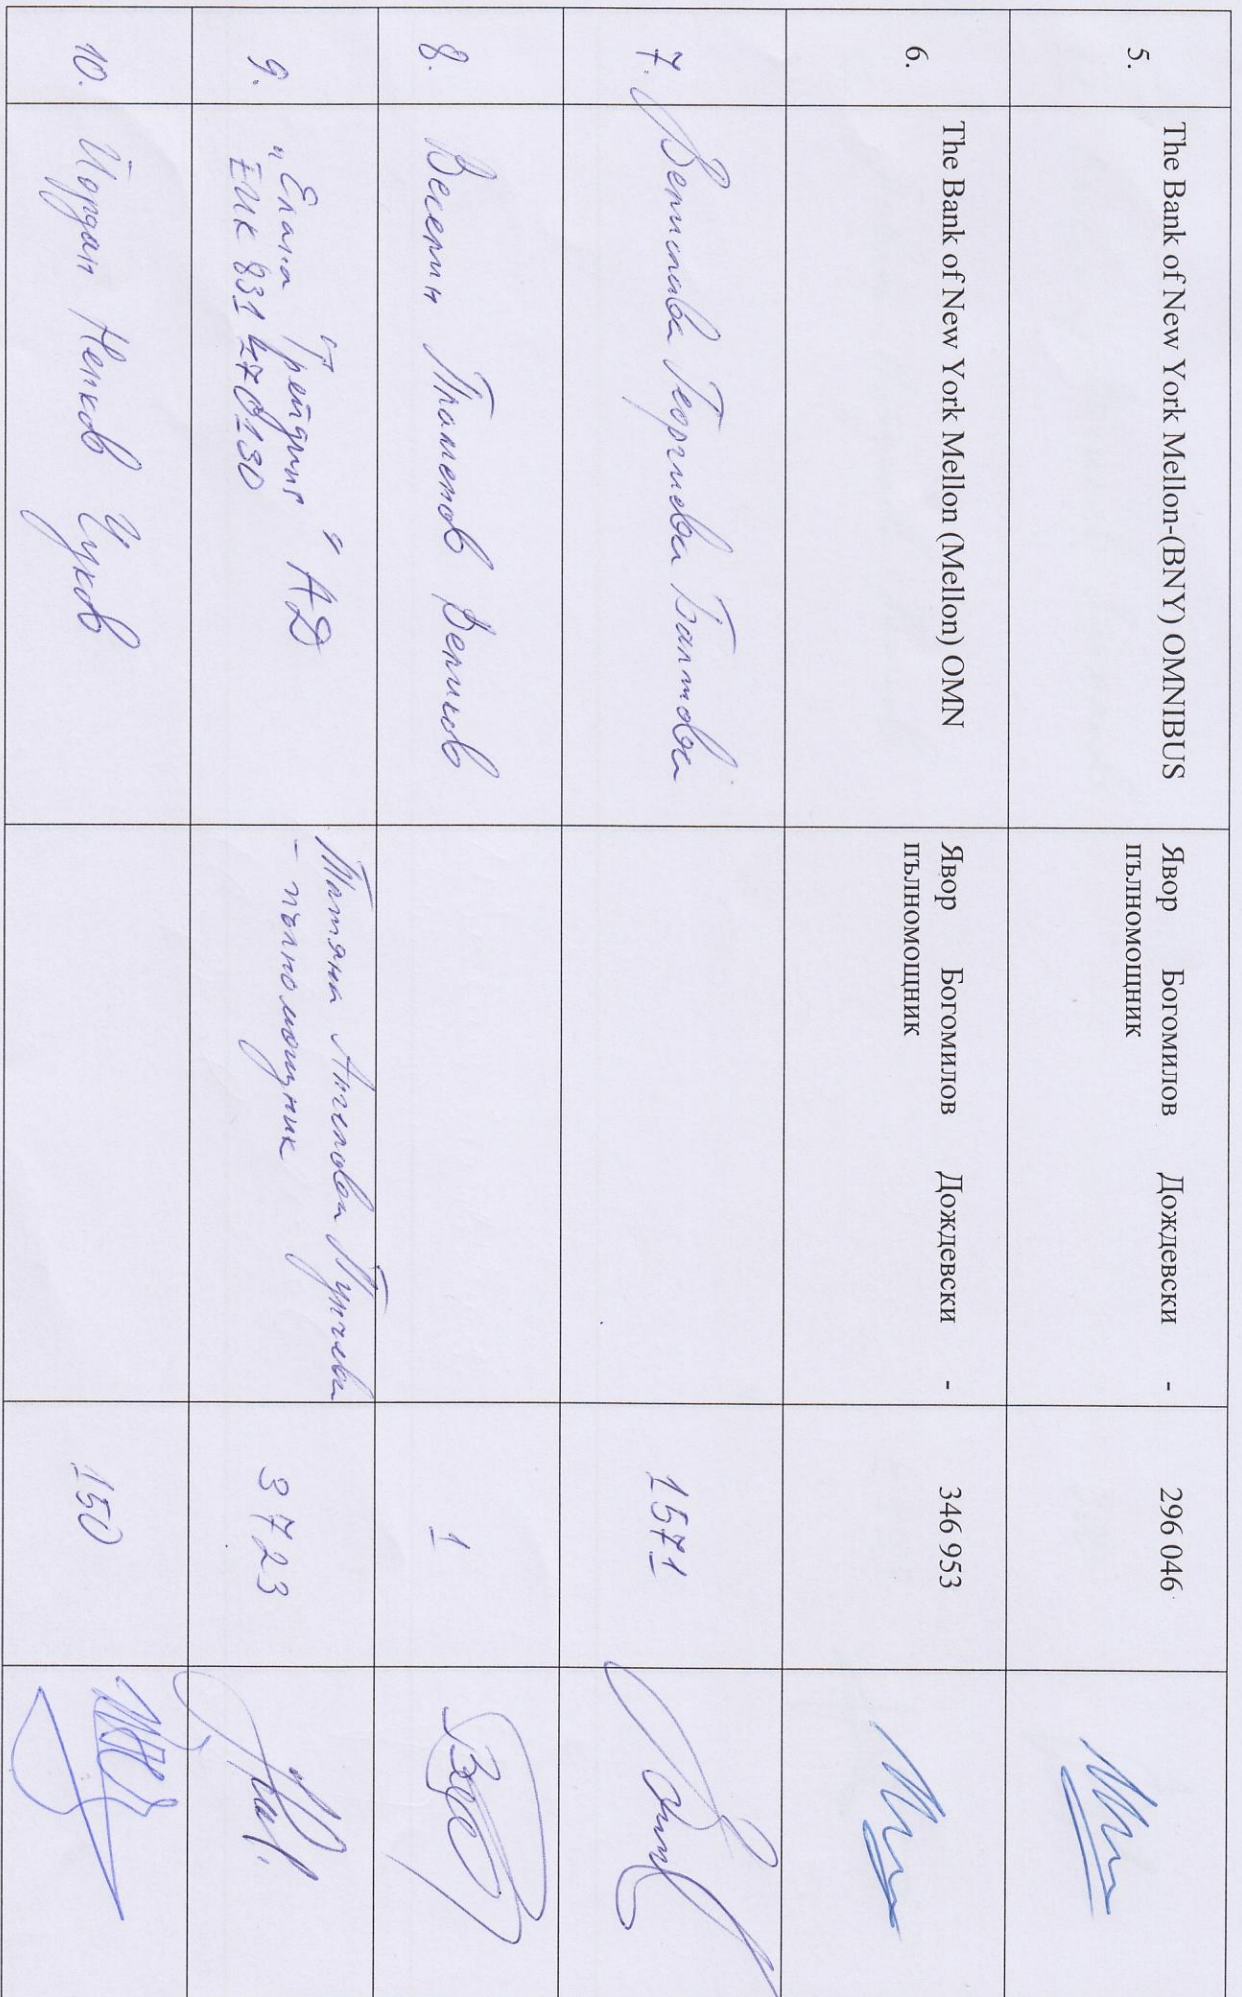 5.
The Bank of New York Mellon-(BNY) OMNIBUS
Явор Богомилов Дождевски -
пълномощник
296 046
6.
The Bank of New York Mellon (Mellon) OMN
Явор Богомилов Дождевски -
пълномощник
346 953
7.
Величка Георгиева Балтова
1571
8.
Веселин Пламенов Великов
1
9.
"Елана Трейдинг" АД
ЕИК 831470130
Татяна Ангелова Пунчева
- пълномощник
3723
10.
Йордан Ненков Цуков
150